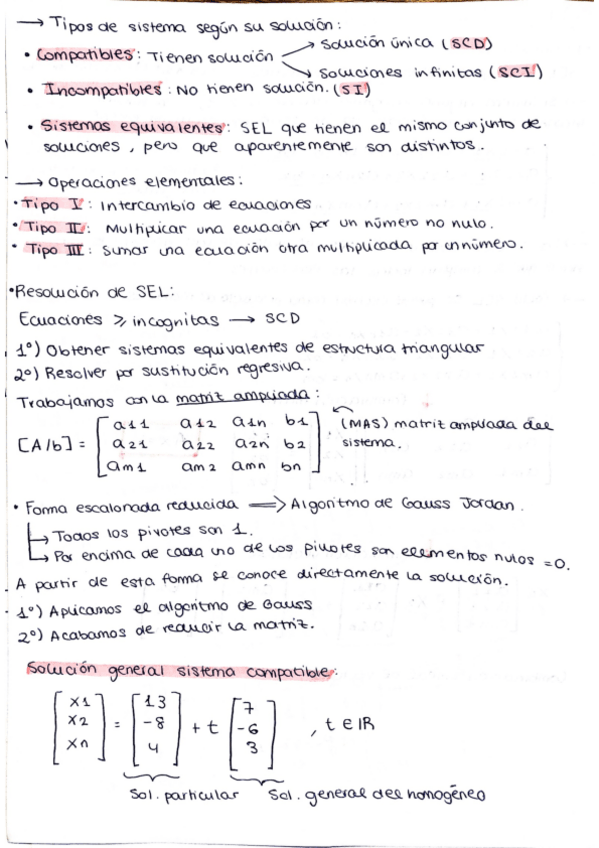 → Tipos de sistema según su solución:
• Compatibles: Tienen solución → Solución única (SCD)
→ Soluciones infinitas (SCI)
• Incompatibles: No tienen solución. (SI)
• Sistemas equivalentes: SEL que tienen el mismo conjunto de
soluciones, pero que aparentemente son distintos.
→ Operaciones elementales:
• Tipo I: Intercambio de ecuaciones
• Tipo II: Multiplicar una ecuación por un número no nulo.
• Tipo III: Sumar una ecuación otra multiplicada por un número.
• Resolución de SEL:
Ecuaciones ⩾ incognitas → SCD
1º) Obtener sistemas equivalentes de estructura triangular
2º) Resolver por sustitución regresiva.
Trabajamos con la matriz ampliada:
[A/b] = [ a11 a12 a1n b1 ← (MAS) matriz ampliada del
a21 a22 a2n b2 sistema.
am1 am2 amn bn ]
• Forma escalonada reducida ⟹ Algoritmo de Gauss Jordan.
↳ Todos los pivotes son 1.
↳ Por encima de cada uno de los pivotes son elementos nulos = 0.
A partir de esta forma se conoce directamente la solución.
1º) Aplicamos el algoritmo de Gauss
2º) Acabamos de reducir la matriz.
Solución general sistema compatible:
[ x1 [ 13 [ 7
x2 = -8 + t -6 , t ∈ IR
xn ] 4 ] 3 ]
Sol. particular Sol. general del homogéneo